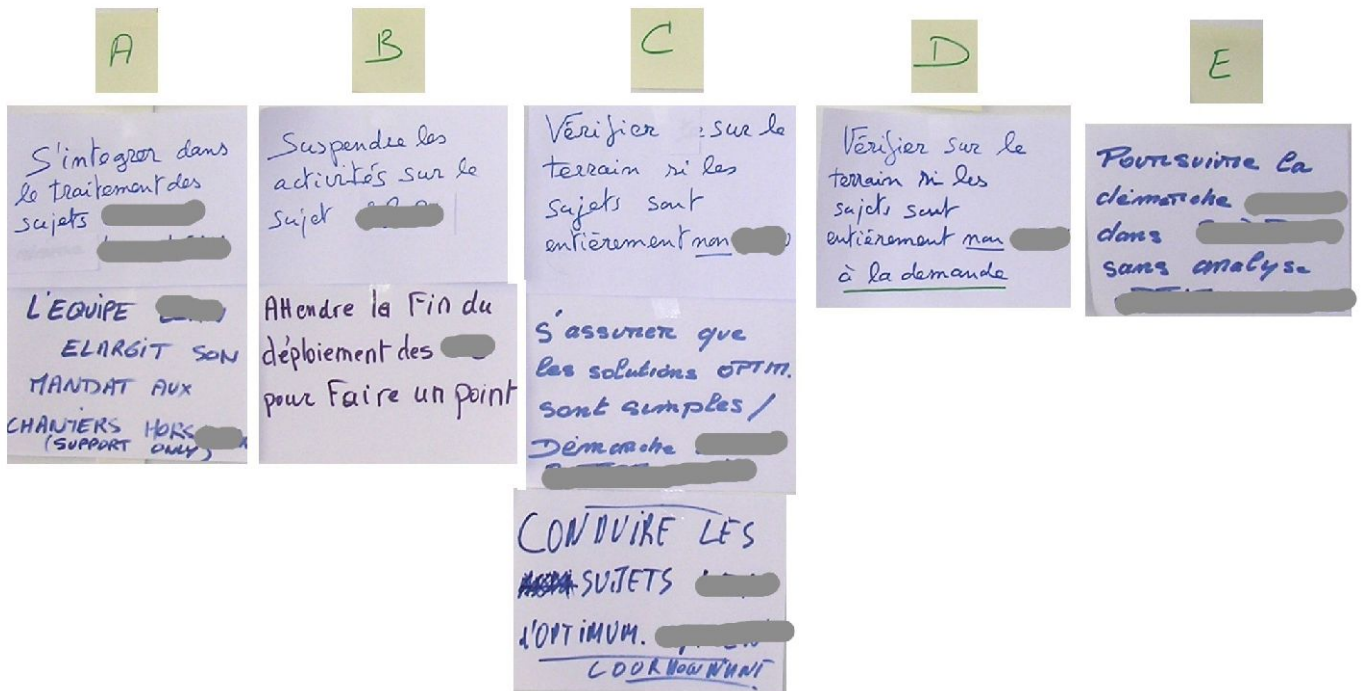 A
S'integrer dans
le traitement des
sujets
L'EQUIPE
ELARGIT SON
MANDAT AUX
CHANTIERS HORS
(SUPPORT ONLY)
B
Suspendre les
activités sur le
sujet
Attendre la Fin du
déploiement des
pour Faire un point
C
Vérifier sur le
terrain si les
sujets sont
entièrement non
S'assurer que
les solutions OPTIM.
sont simples /
Démarche
CONDUIRE LES
SUJETS
d'OPTIMUM.
D
Vérifier sur le
terrain si les
sujets sont
entièrement non
à la demande
E
Poursuivre la
démarche
dans
sans analyse